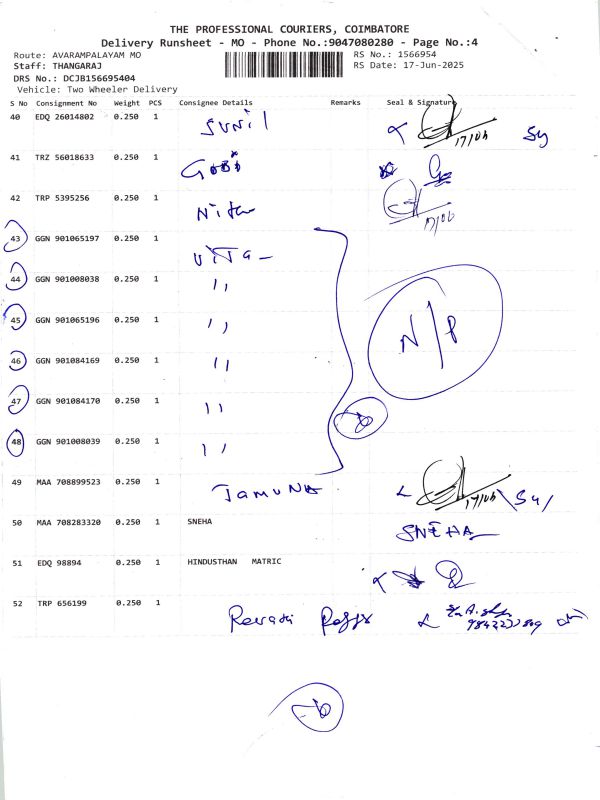 THE PROFESSIONAL COURIERS, COIMBATORE
Delivery Runsheet - MO - Phone No.:9047080280 - Page No.:4
Route: AVARAMPALAYAM MO RS No.: 1566954
Staff: THANGARAJ RS Date: 17-Jun-2025
DRS No.: DCJB156695404
Vehicle: Two Wheeler Delivery
S No Consignment No Weight PCS Consignee Details Remarks Seal & Signature
40 EDQ 26014802 0.250 1 SUNIL 17/06
41 TRZ 56018633 0.250 1
42 TRP 5395256 0.250 1 17/06
43 GGN 901065197 0.250 1
44 GGN 901008038 0.250 1 ,,
45 GGN 901065196 0.250 1 ,,
46 GGN 901084169 0.250 1 ,, N/P
47 GGN 901084170 0.250 1 ,,
48 GGN 901008039 0.250 1 ,,
49 MAA 708899523 0.250 1 JAMUNA 17/06
50 MAA 708283320 0.250 1 SNEHA SNEHA
51 EDQ 98894 0.250 1 HINDUSTHAN MATRIC
52 TRP 656199 0.250 1